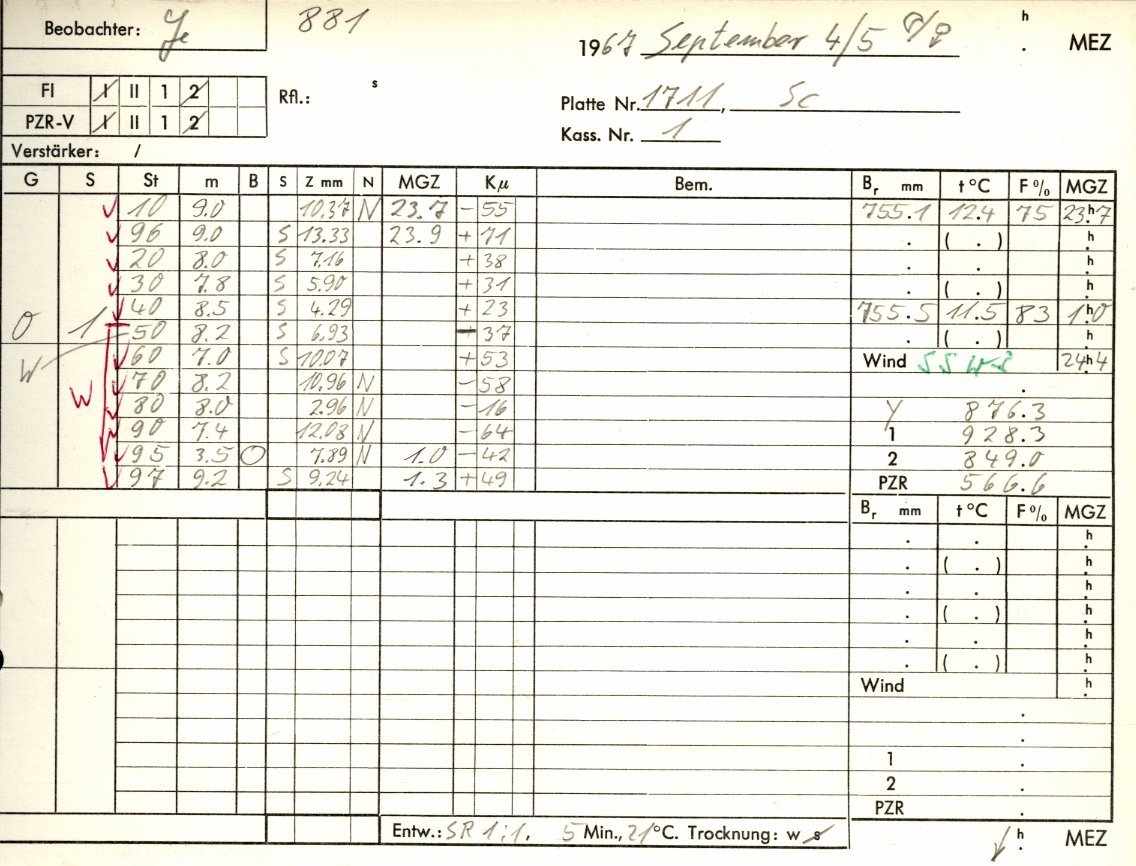 Beobachter: Je 881 1967 September 4/5 ♂/♀ h . MEZ
FI I II 1 2 Rfl.: s
PZR-V I II 1 2 Platte Nr. 1711, Sc
Kass. Nr. 1
Verstärker: /
G S St m B S Z mm N MGZ Kμ Bem. Br mm t °C F% MGZ
10 9.0 10.37 N 23.7 - 55 755.1 12.4 75 23h7
96 9.0 S 13.33 23.9 + 71 . ( . ) h
20 8.0 S 7.16 + 38 . . h
30 7.8 S 5.90 + 31 . ( . ) h
40 8.5 S 4.29 + 23 755.5 11.5 83 1h0
O 1 50 8.2 S 6.93 37 . ( . ) h
W 60 7.0 S 10.07 + 53 Wind SSW 24h4
W 70 8.2 10.96 N - 58 .
80 8.0 2.96 N - 16 Y 876.3
90 7.4 12.08 N - 64 1 928.3
95 3.5 O 7.89 N 1.0 - 42 2 849.0
97 9.2 S 9.24 1.3 + 49 PZR 566.6
Br mm t °C F% MGZ
. . h
. ( . ) h
. . h
. ( . ) h
. . h
. ( . ) h
Wind h
.
.
1 .
2 .
PZR .
Entw.: SR 1:1. 5 Min., 21°C. Trocknung: w s h . MEZ